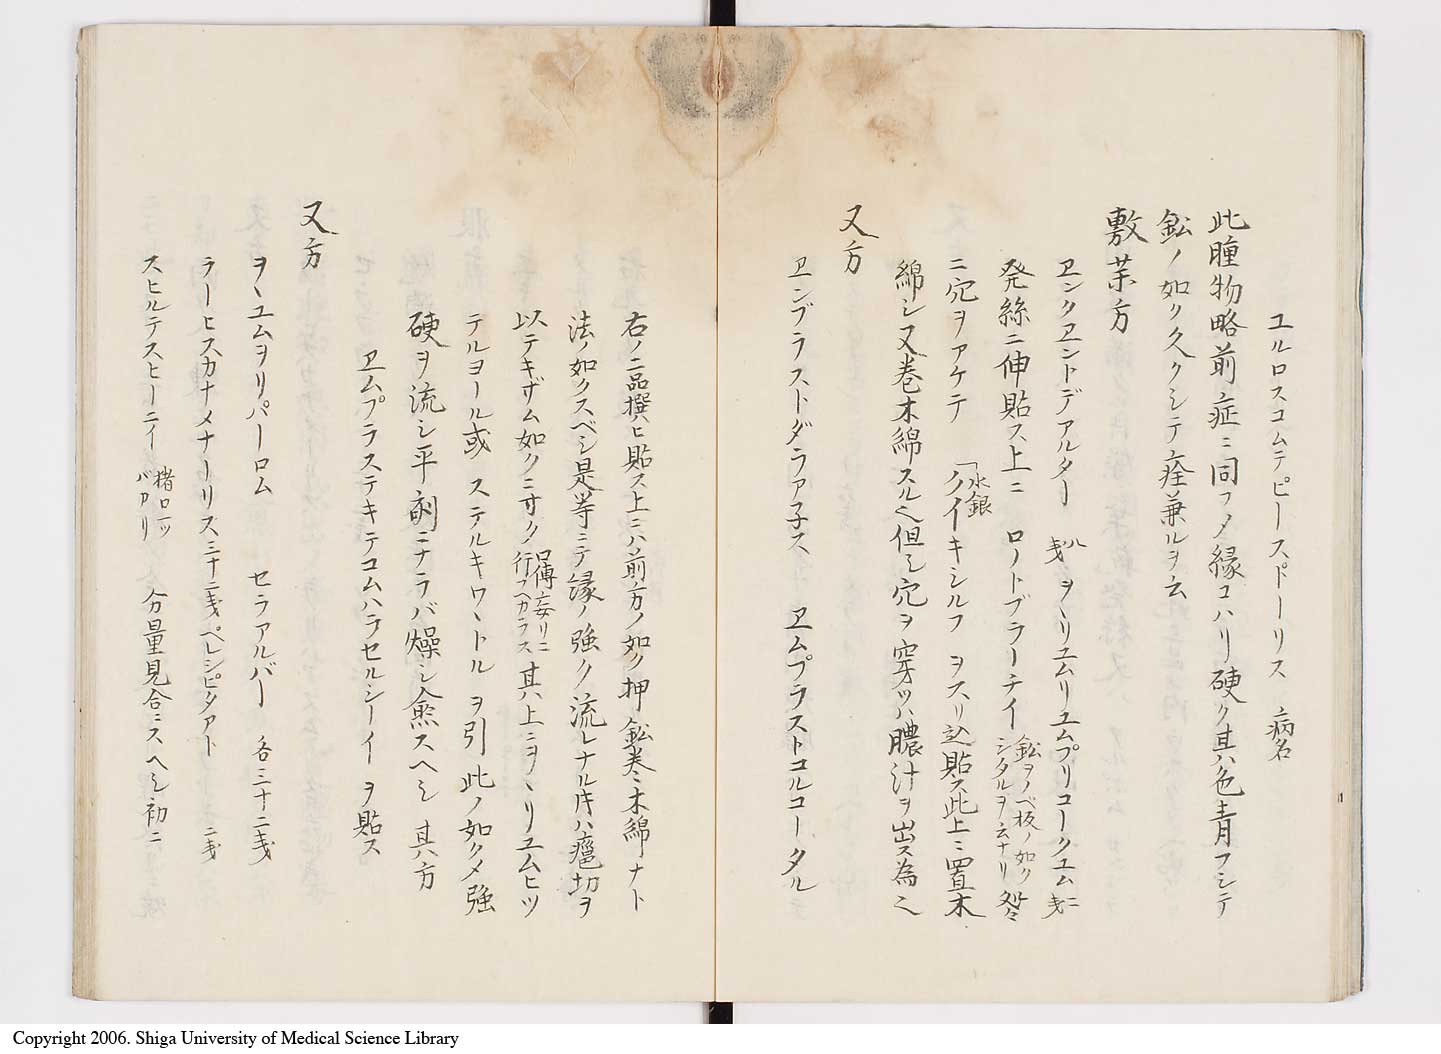 ユルロスコムテピースドーリス 病名
此腫物略前症ニ同フノ縁コハリ硬ク其色青フシテ
鉛ノ如ク久クシテ痊兼ルヲ云
敷薬方
ヱンクヱントデアルター 八戔 ヲヽリユムリユムプリコークユム 二戔
発絲ニ伸貼ス上ニ ロノトブラーテイ 鉛ヲノベ板ノ如ク
シタルヲ云ナリ
ニ穴ヲアケテ 「クイキシルフ 水銀 ヲスリ込貼ス此上ニ置木
綿シ又巻木綿スル也但シ穴ヲ穿ツハ膿汁ヲ出ス為也
又方
ヱンブラストダラアネス ヱムプラストコルコータル
右ノ二品撰ヒ貼ス上ニハ前ノ方ノ如ク押鉛巻木綿ナト
法ノ如クスベシ是等ニテ縁ノ強ク流レナル片ハ瘡切ヲ
以テキザム如クニ可ク 口傳妄リニ
行フヘカラス 其上ニヲヽリユムヒツ
テルヨール或 ステルキワヽトル ヲ引此ノ如クメ強
硬ヲ流シ平劑ニナラバ燥シ愈スヘシ 其方
ヱムプラステキテコムハラセルシーイ ヲ貼ス
又方
ヲヽユムヲリパーロム セラアルバー 各三十二戔
ラーヒスカナメナーリス 三十二戔 ペレシピタアト 二戔
スヒルテスヒーニイ 猪口一ツ
バカリ 分量見合ニスヘシ初ニ
Copyright 2006. Shiga University of Medical Science Library